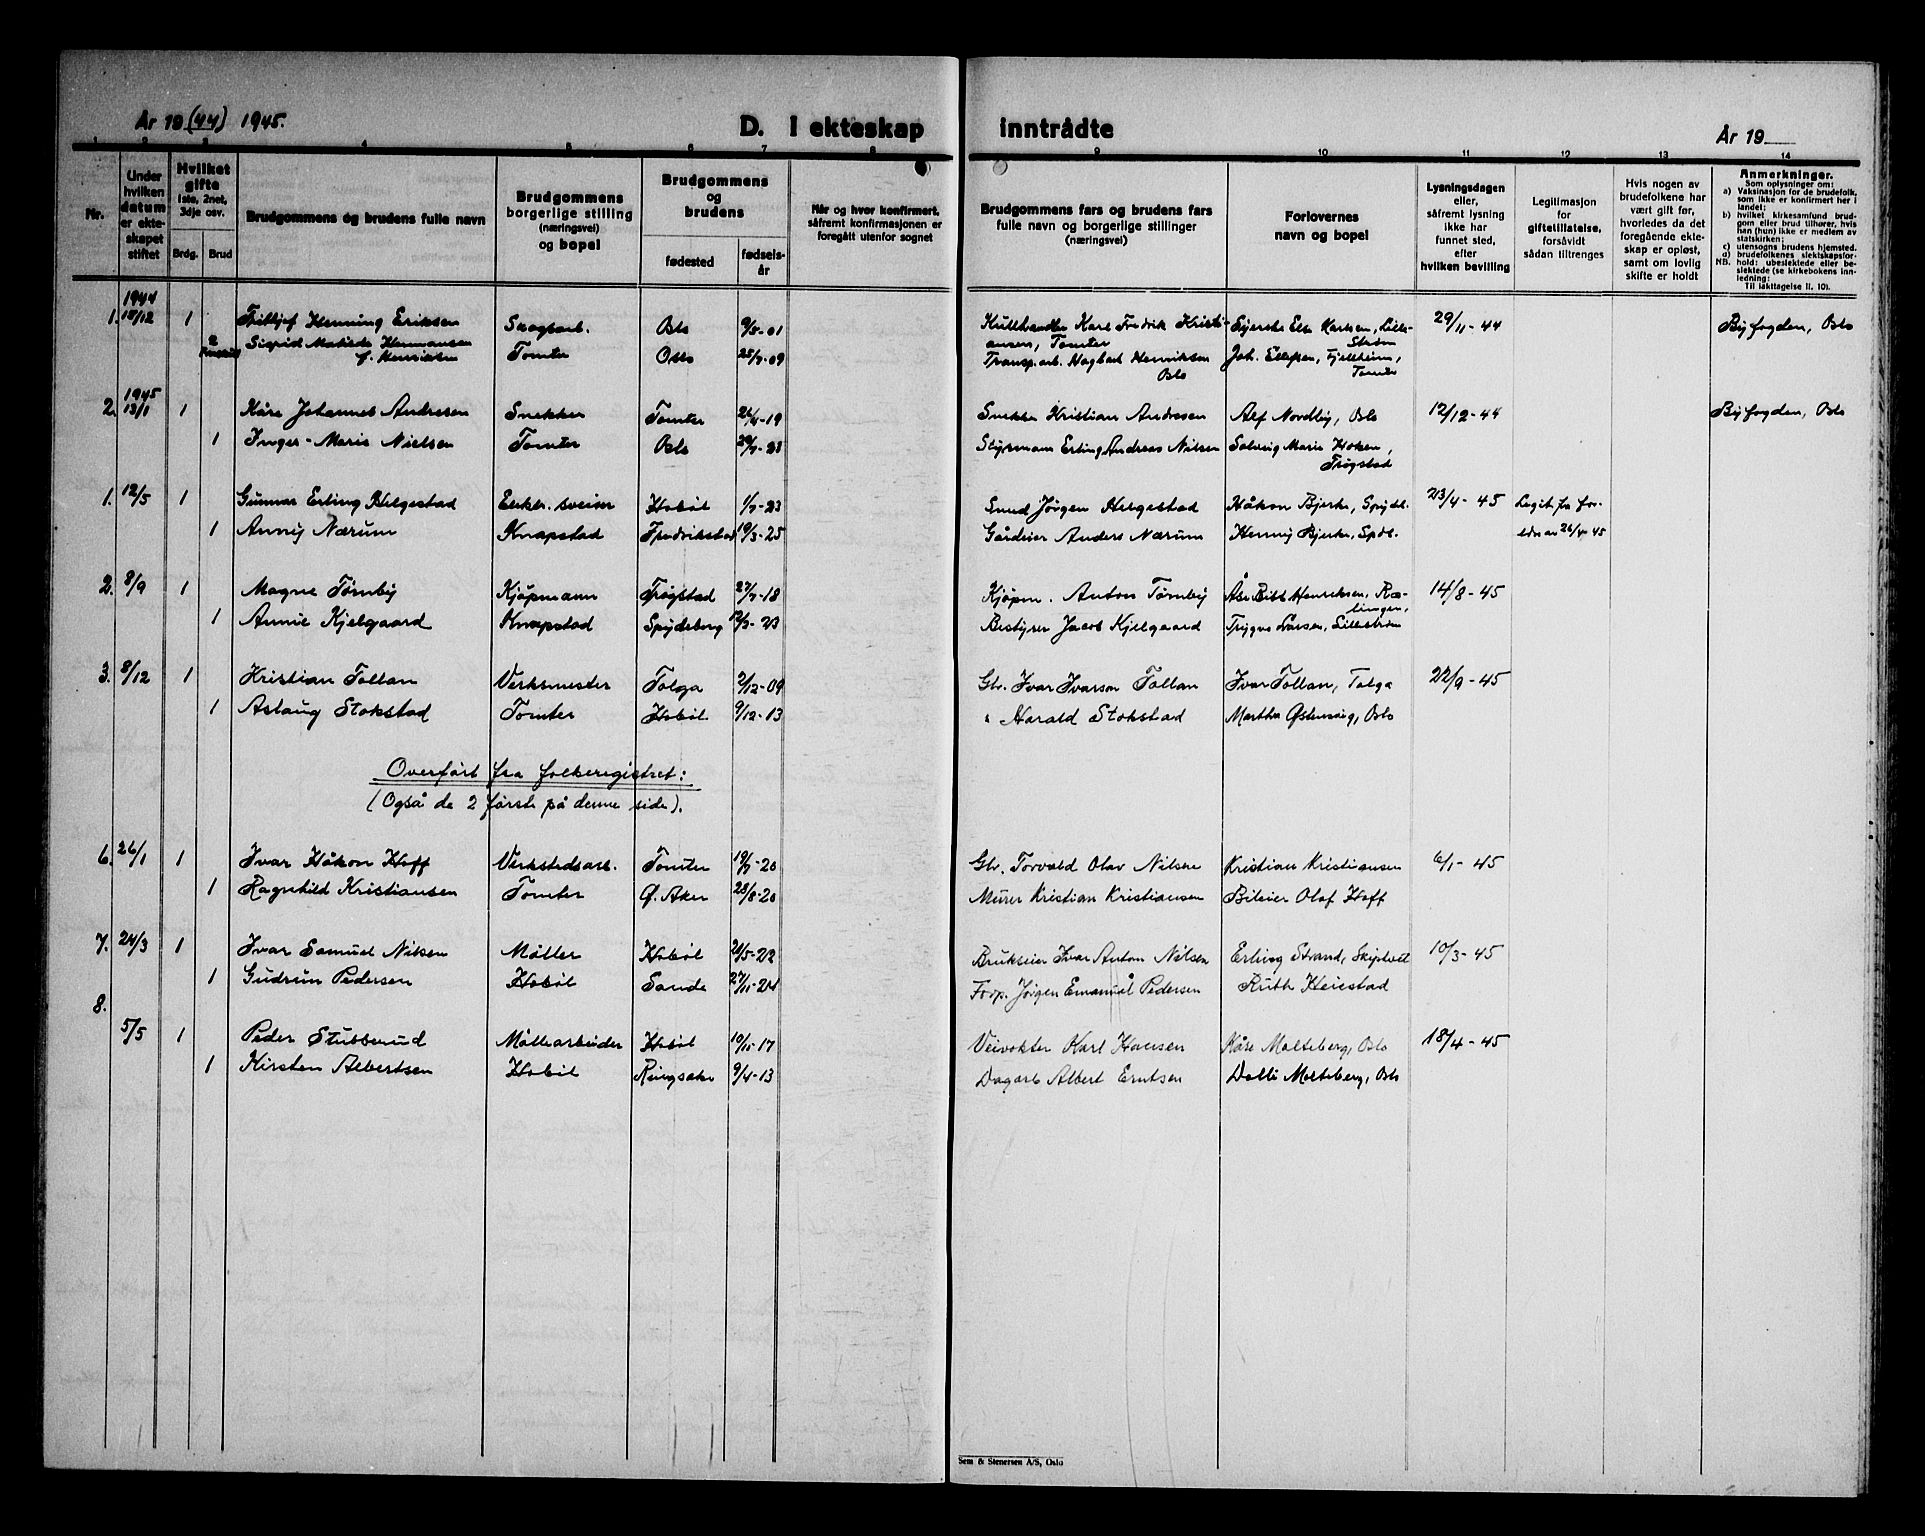 År 19(44) 1945.
D. I ekteskap inntrådte
År 19
1 2 3 4 5 6 7 8 9 10 11 12 13 14
Nr.
Under hvilken datum er ekteskapet stiftet
Hvilket gifte
1ste, 2net, 3dje osv.
Brdg. Brud
Brudgommens og brudens fulle navn
Brudgommens borgerlige stilling (næringsvei) og bopel
Brudgommens og brudens
fødested
fødselsår
Når og hvor konfirmert, såfremt konfirmasjonen er foregått utenfor sognet
Brudgommens fars og brudens fars fulle navn og borgerlige stillinger (næringsvei)
Forlovernes navn og bopel
Lysningsdagen eller, såfremt lysning ikke har funnet sted, efter hvilken bevilling
Legitimasjon for giftetillatelse, forsåvidt sådan tiltrenges
Hvis nogen av brudefolkene har vært gift før, hvorledes da det foregående ekteskap er opløst, samt om lovlig skifte er holdt
Anmerkninger.
Som oplysninger om:
a) Vaksinasjon for de brudefolk, som ikke er konfirmert her i landet;
b) hvilket kirkesamfund brudgom eller brud tilhører, hvis han (hun) ikke er medlem av statskirken;
c) utensogns brudens hjemsted.
d) brudefolkenes slektskapsforhold: ubeslektede eller beslektede (se kirkebokens innledning;
NB. Til iakttagelse II. 10).
1944
1. 15/12 1 Fritjof Henning Eriksen Skogsarb. Oslo 9/5-01 Kullhandler Karl Fredrik Kristiansen, Tomter Else Karlsen, Lillestrøm 29/11-44 Byfogden, Oslo
2 Sigrid Matilde Hermansen f. Henriksen Tomter Oslo 25/7-09 Transp.arb. Hagbart Henriksen Oslo Joh. Ellefsen, Fjellheim, Tomter
1945
2. 13/1 1 Kåre Johannes Andresen Snekker Tomter 26/4-19 Snekker Kristian Andresen Alf Nordby, Oslo 12/12-44 Byfogden, Oslo
1 Inger-Marie Nielsen Tomter Oslo Styrmann Erling Andreas Nilsen Solveig Marie Hoken, Trøgstad
1. 12/5 1 Gunnar Erling Helgestad Elektr. sveiser Hobøl 1/7-23 Smed Jørgen Helgestad Håkon Bjerke, Spydeb. 23/4-45 Legit. fra for-
1 Anny Nærum Knapstad Fredrikstad 19/3-25 Gårdeier Anders Nærum Henny Bjerke, Spdb. eldre av 26/4-45
2. 8/9 1 Magne Tømby Kjøpmann Trøgstad 27/7-18 Kjøpm. Anton Tømby Åse Britt Henriksen, Rælingen, 14/8-45
1 Annie Kjelgaard Knapstad Spydeberg Bestyrer Jacob Kjelgaard Trygve Larsen, Lillestrøm
3. 8/12 1 Kristian Tollan Verksmester Tolga 2/12-09 Gbr. Ivar Ivarson Tollan Ivar Tollan, Tolga 22/9-45
1 Aslaug Stokstad Tomter Hobøl 9/12-13 " Harald Stokstad Martha Østensvig, Oslo
Overført fra folkeregistret:
(Også de 2 første på denne side).
6. 26/1 1 Ivar Håkon Hoff Verkstedsarb. Tomter 19/7-20 Gbr. Torvald Olav Nilsen Kristian Kristiansen 6/1-45
1 Ragnhild Kristiansen Tomter Ø. Aker 28/8-20 Murer Kristian Kristiansen Bileier Olaf Hoff
7. 24/3 1 Ivar Samuel Nilsen Møller Hobøl 21/5-22 Brukseier Ivar Anton Nilsen Erling Strand, Skiptvet 10/3-45
1 Gudrun Pedersen Hobøl Sande 27/11-24 Forp. Jørgen Emanuel Pedersen Ruth Heiestad
8.
5/5 1 Peder Stubberud Møllearbeider Hobøl 10/10-17 Veivokter Karl Hansen Kåre Molteberg, Oslo 18/4-45
1 Kirsten Albertsen Hobøl Ringsaker 9/4-13 Dagarb Albert Erntsen Dolli Molteberg, Oslo
Sem & Stenersen A/S, Oslo